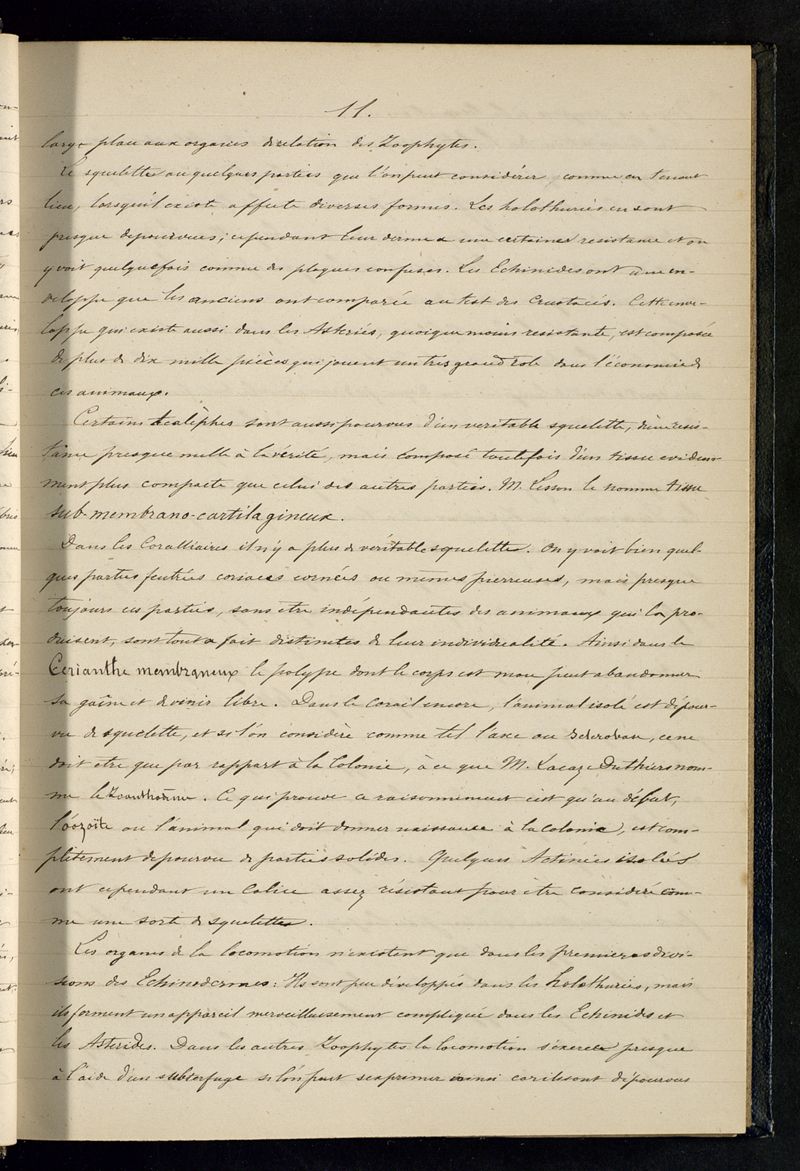 11.
large place aux organes de relation des Zoophytes.
Le squelette ou quelques parties que l'on peut considérer comme en tenant
lieu, lorsqu'il existe affecte diverses formes. Les holothuries en sont
presque depourvues; cependant leur derme a une certaine resistance et on
y voit quelquefois comme des plaques confuses. Les Echinides ont une en-
veloppe que les anciens ont comparée au test des Crustacés. Cette enve-
loppe qui existe aussi dans les Asteries, quoique moins resistante, est composée
de plus de dix mille pièces qui jouent un tres grand role dans l'économie de
ces animaux.
Certains Acalèphes sont aussi pourvus d'un veritable squelette, d'une resis-
tance presque nulle à la vérité, mais composé toutefois d'un tissu evidem-
ment plus compacte que celui des autres parties. M. Lesson le nomme tissu
sub-membrano-cartilagineux.
Dans les Coralliaires il n'y a plus de veritable squelette. On y voit bien quel-
ques parties feutrées coriaces cornées ou mêmes pierreuses, mais presque
toujours ces parties, sans être indépendantes des animaux qui les pro-
duisent, sont tout a fait distinctes de leur individualité. Ainsi dans le
Cerianthe membraneux le polype dont le corps est mou peut abandonner
sa gaîne et devenir libre. Dans le Corail encore, l'animal isolé est dépour-
vu de squelette, et si l'on considère comme tel l'axe ou Sclerobase, ce ne
doit etre que par rapport à la Colonie, à ce que M. Lacaze Duthiers nom-
me le Zoanthodème. Ce qui prouve ce raisonnement c'est qu'au début,
l'oozoïte ou l'animal qui doit donner naissance à la colonie, est com-
plètement depourvu de parties solides. Quelques Actinies isolées
ont cependant un Calice assez résistant pour être considéré com-
me une sorte de squelette.
Les organes de la locomotion n'existent que dans les premieres divi-
sions des Echinodermes: Ils sont peu développés dans les Holothuries, mais
ils forment un appareil merveilleusement compliqué dans les Echinides et
les Asterides. Dans les autres Zoophytes la locomotion s'exerce presque
à l'aide d'un subterfuge si l'on peut s'exprimer ainsi car ils sont dépourvus